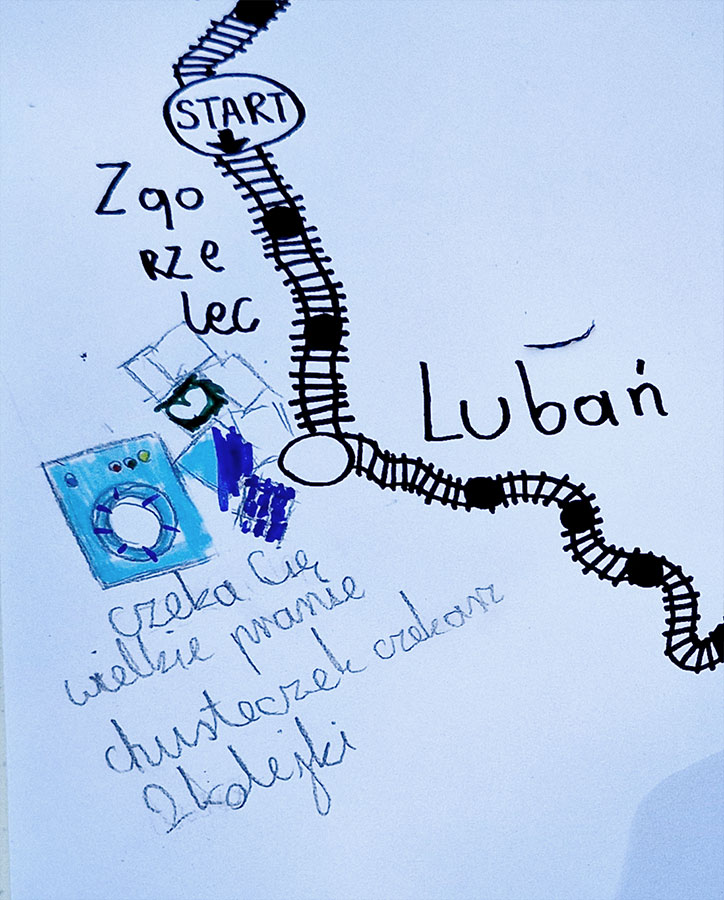 START
Zgo
rze
lec
Lubań
czeka Cię
wielkie pranie
chusteczek czekasz
2 kolejki